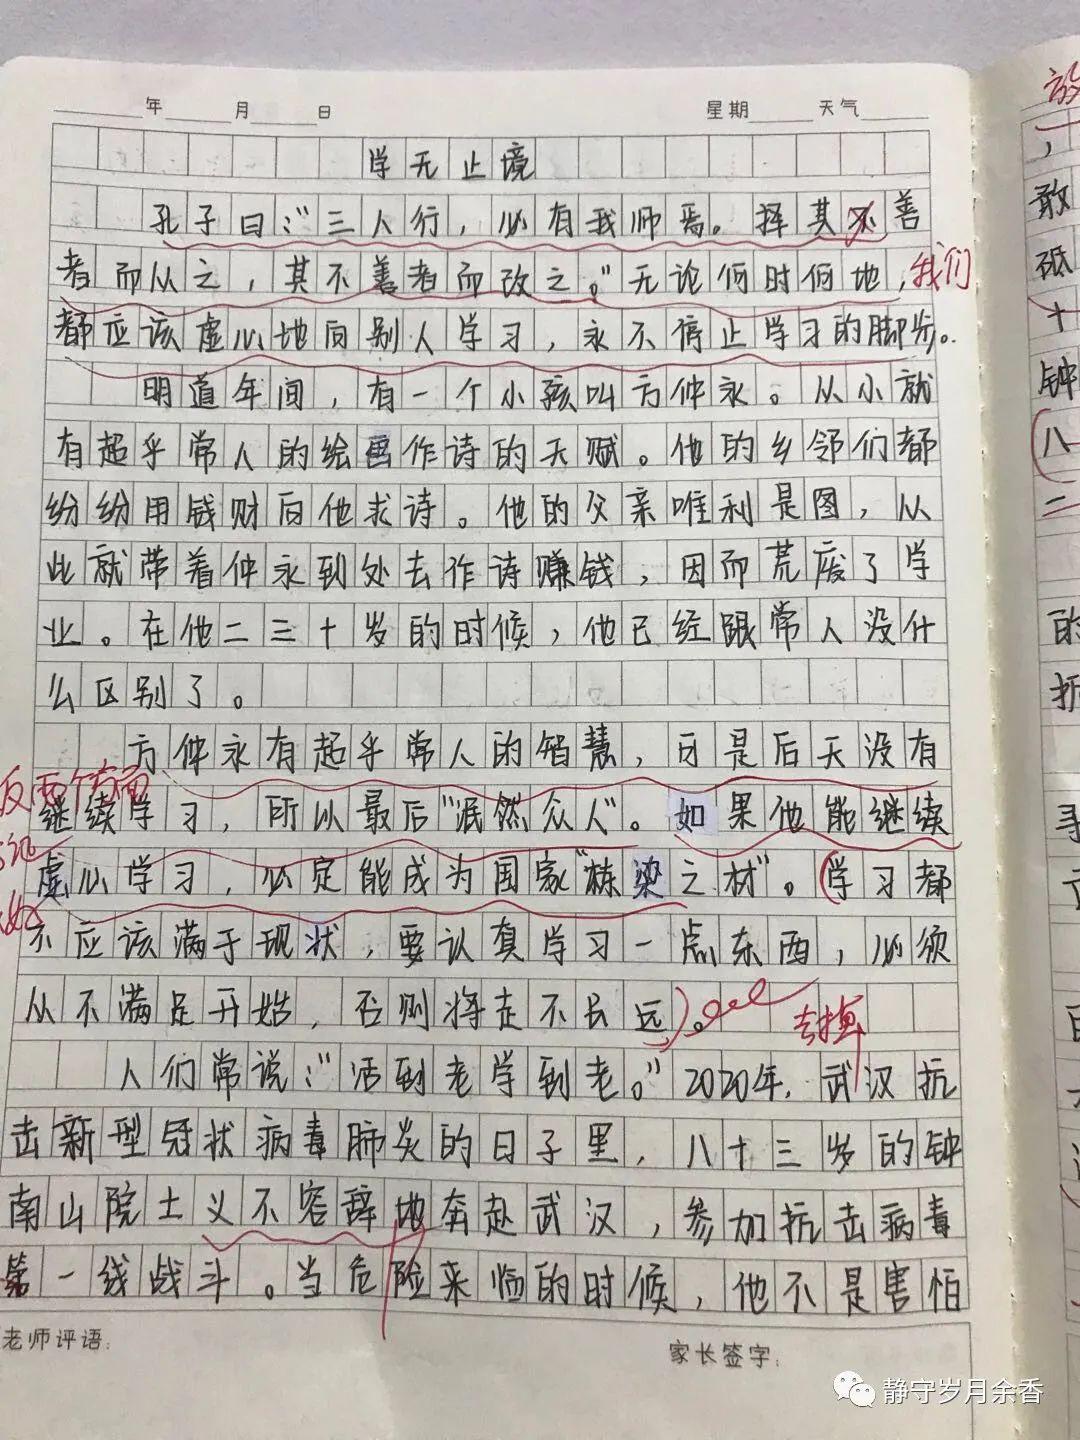 年 月 日 星期 天气
学无止境
孔子曰:"三人行,必有我师焉。择其不善
者而从之,其不善者而改之。"无论何时何地,我们
都应该虚心地向别人学习,永不停止学习的脚步。
明道年间,有一个小孩叫方仲永。从小就
有超乎常人的绘画作诗的天赋。他的乡邻们都
纷纷用钱财向他求诗。他的父亲唯利是图,从
此就带着仲永到处去作诗赚钱,因而荒废了学
业。在他二三十岁的时候,他已经跟常人没什
么区别了。
方仲永有超乎常人的智慧,可是后天没有
继续学习,所以最后"泯然众人"。如果他能继续
虚心学习,必定能成为国家"栋梁之材"。学习都
不应该满于现状,要认真学习一点东西,必须
从不满足开始,否则将走不长远。
去掉
人们常说:"活到老学到老。"2020年,武汉抗
击新型冠状病毒肺炎的日子里,八十三岁的钟
南山院士义不容辞地奔赴武汉,参加抗击病毒
第一线战斗。当危险来临的时候,他不是害怕
老师评语: 家长签字:
敢
砥
十
钟
八
二
的
静守岁月余香